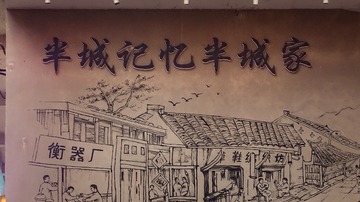 半城记忆半城家
衡器厂
鞋纺织坊